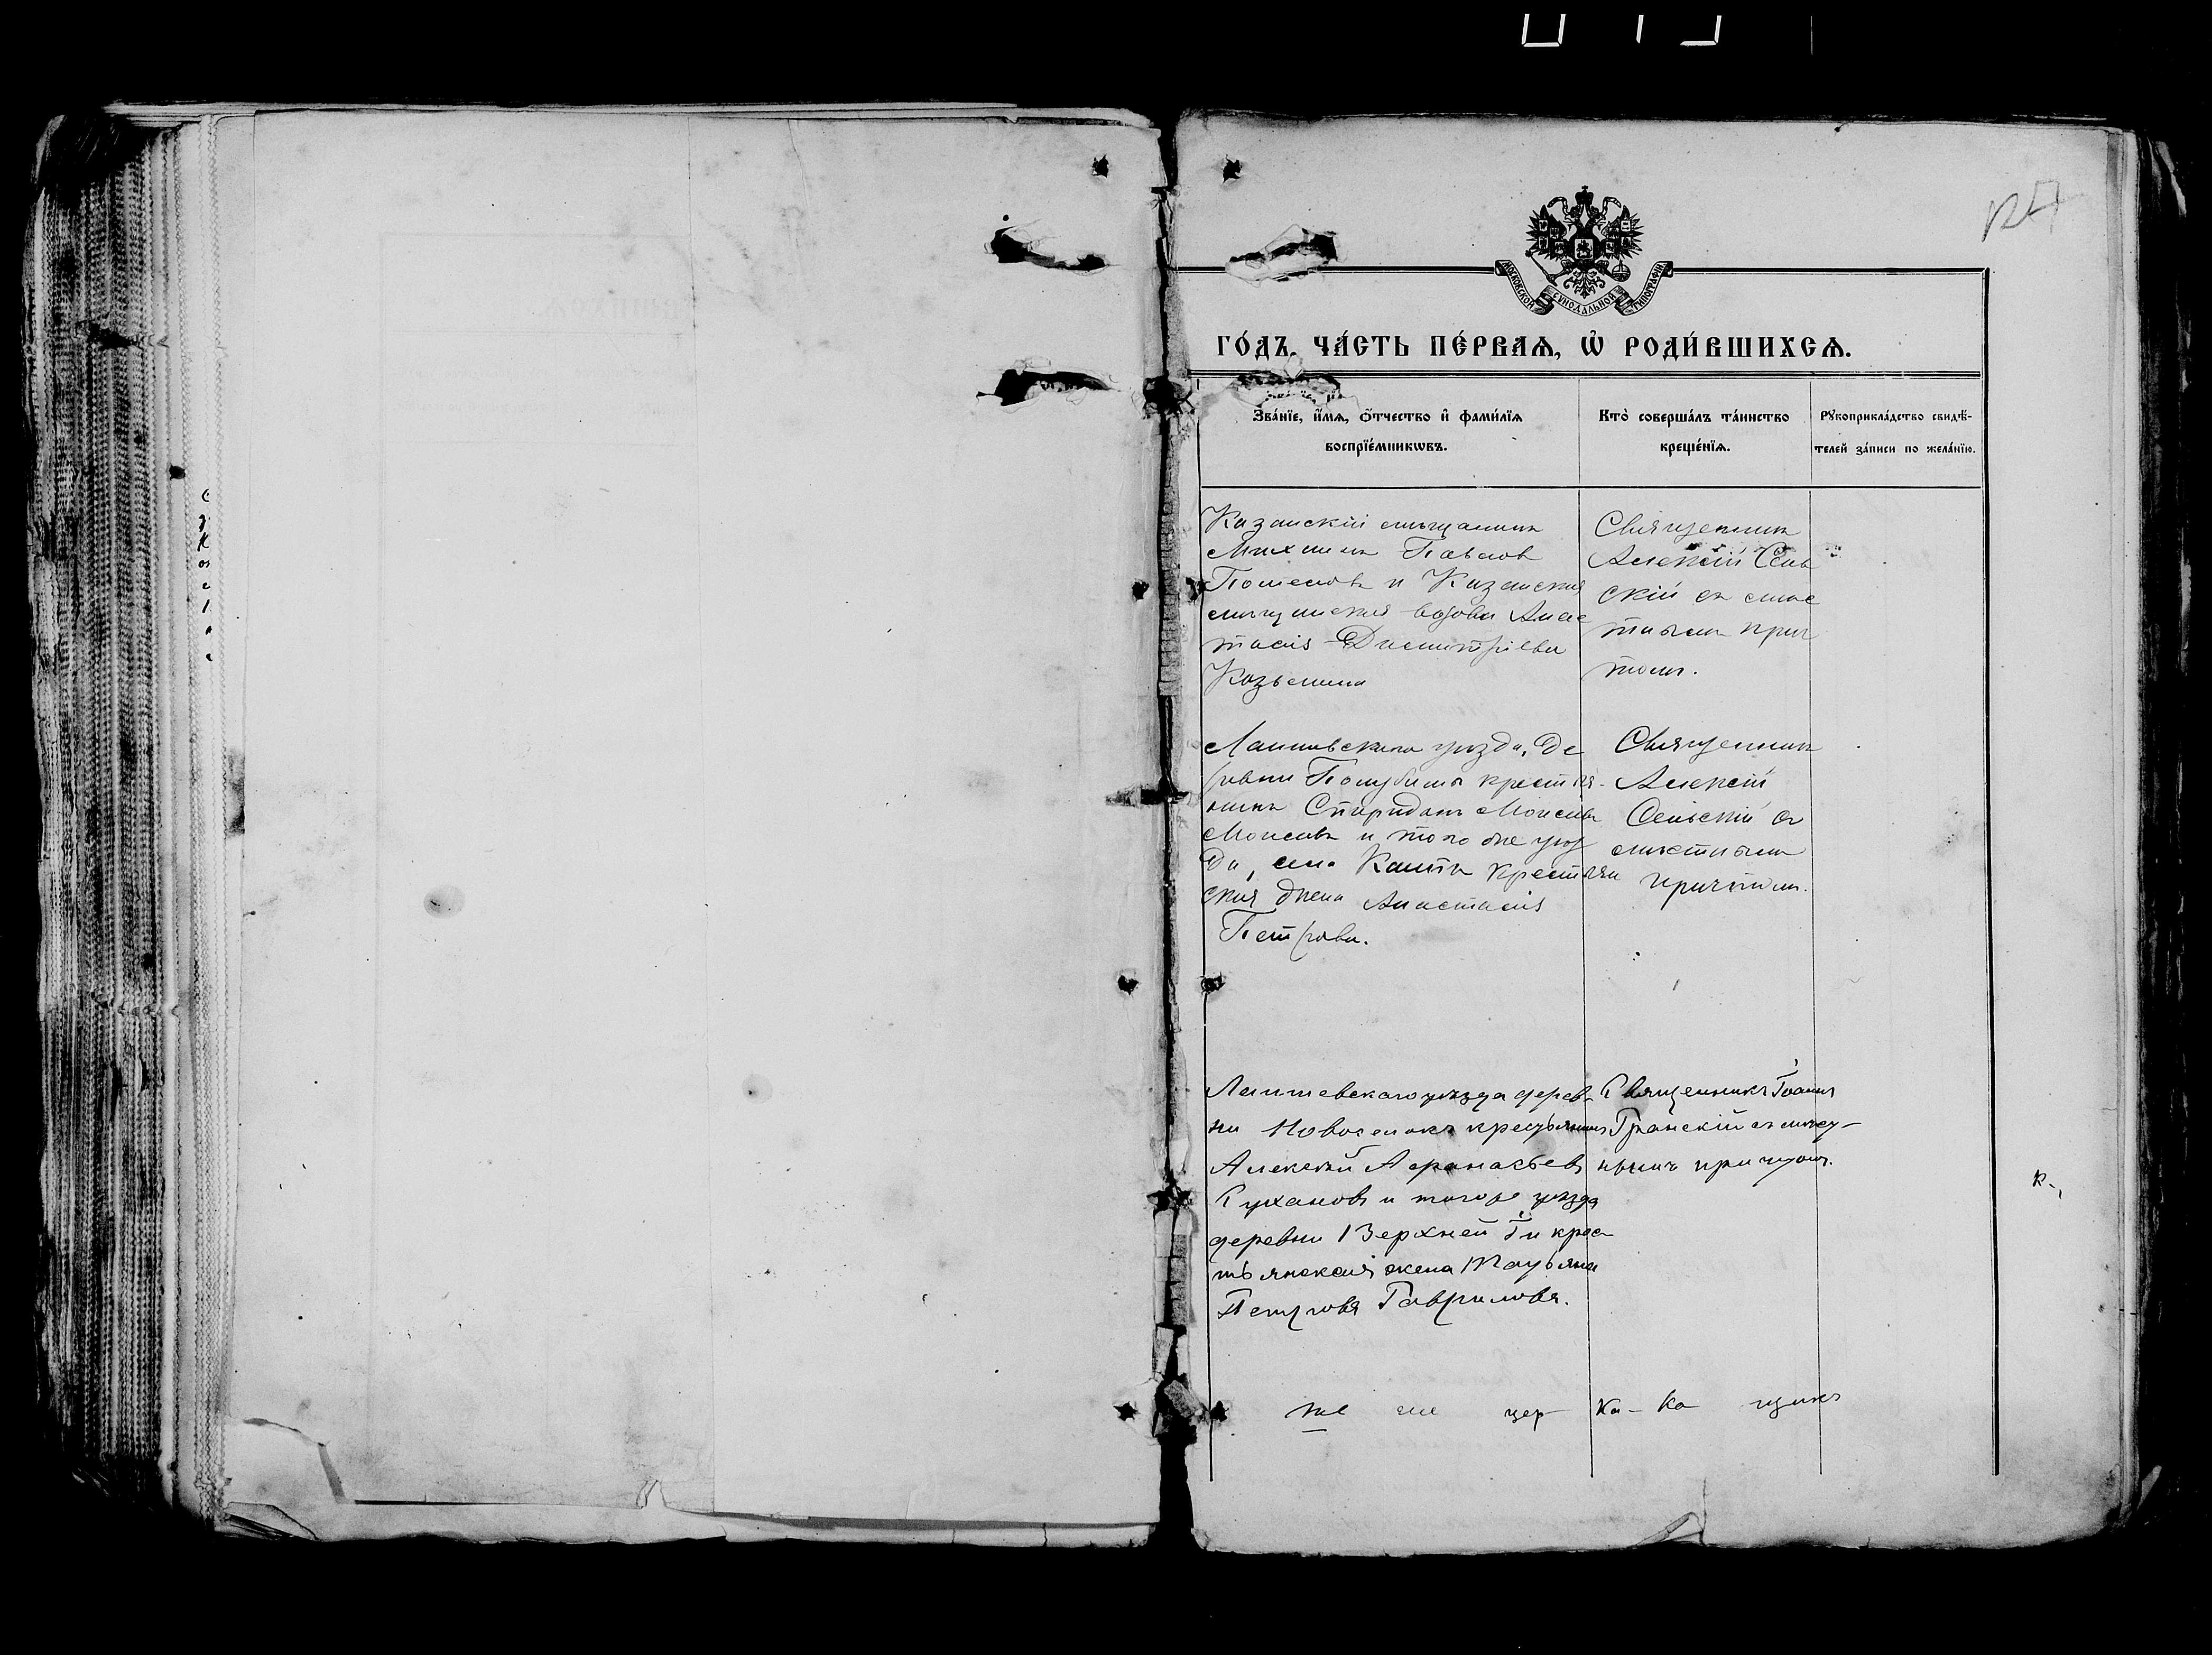 МОСКОВСКОЙ СѴНОДАЛЬНОЙ ТИПОГРАФІИ
ГО́ДЪ. ЧА́СТЬ ПЕ́РВАѦ, Ѽ РОДИ́ВШИХСѦ.
Зва́нїе, и҆́мѧ, ѻ҆́тчество и҆ фами́лїѧ
воспрїе́мникѡвъ.
Кто̀ соверша́лъ та́инство
креще́нїѧ.
Рꙋкоприкла́дство свидѣ́-
телей за́писи по жела́нїю.
Казанскій мѣщанинъ
Михаилъ Павлов
и Казанская
мѣщанская вдова Анас
тасія Димитріева
Козьмина
Священник
Алексій Сель
скій съ мѣс
тнымъ прич
томъ.
Лаишевскаго уѣзда, де
ревни крестья-
нинъ Спиридонъ Моисеевъ
Моисеевъ и того же уѣз
да, села крестьян
ская жена Анастасія
Петрова.
Священникъ
Алексій
Сельскій съ
мѣстнымъ
причтомъ.
Лаишевскаго уѣзда дерев-
ни Новоселокъ крестьянинъ
Алексѣй Афанасьевъ
Сухановъ и тогоже уѣзда
деревни Верхней крес-
тьянская жена Татьяна
Петрова Гаврилова.
Священникъ Іоаннъ
Гранскій съ мѣст-
нымъ причтомъ.
цер- ка- ка щикъ
к-,